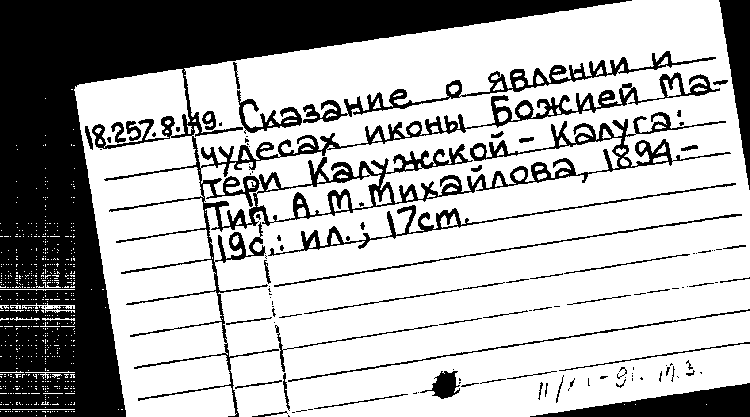 18.257.8.149. Сказание о явлении и
чудесах иконы Божией Ма-
тери Калужской.- Калуга:
Тип. А.М.Михайлова, 1894.-
19с.: ил.; 17cm.